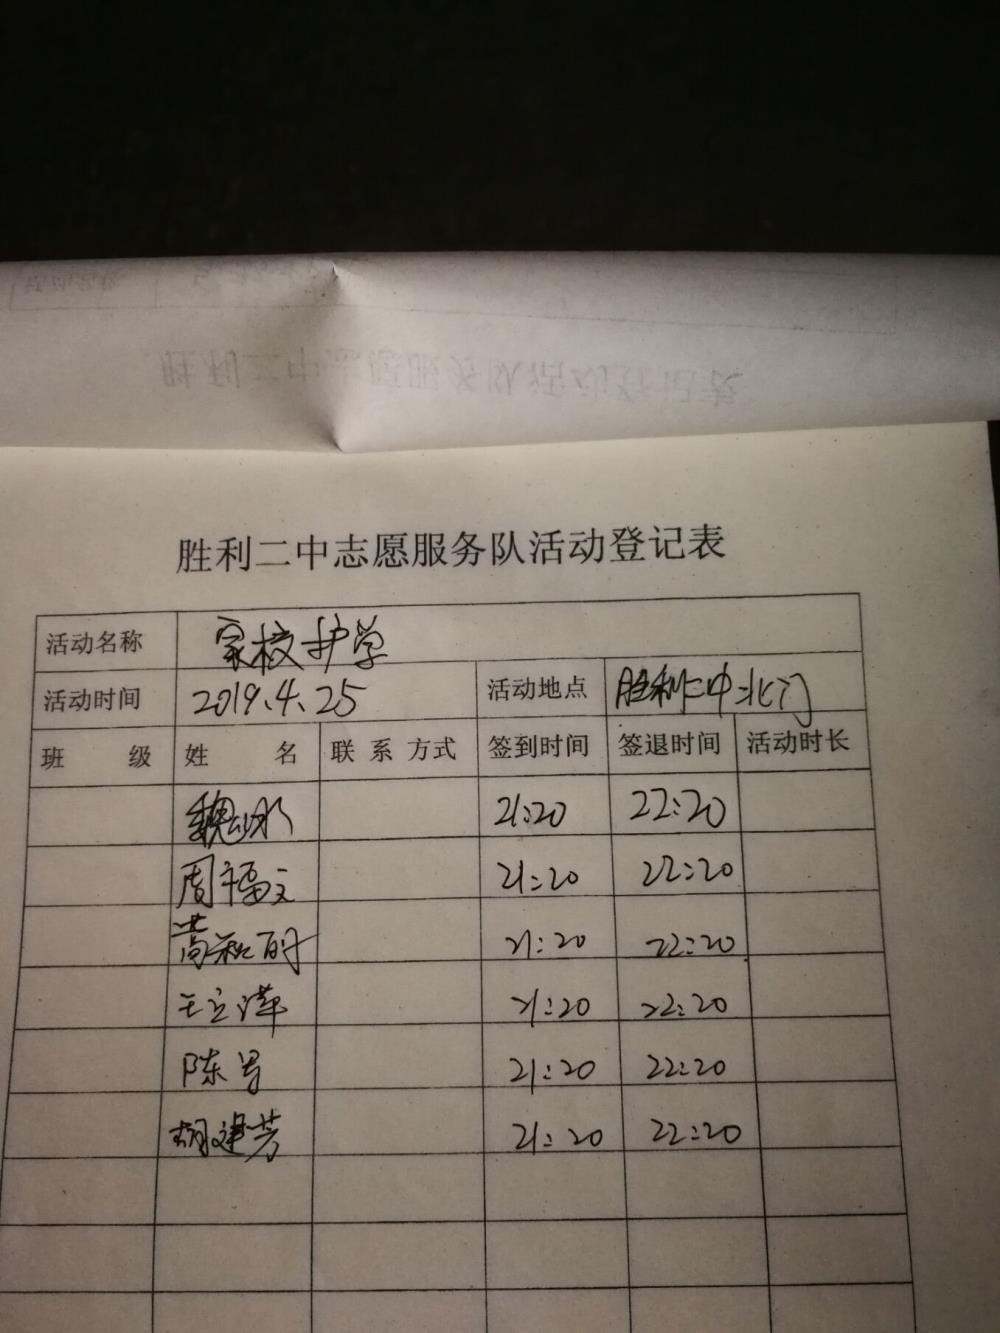 胜利二中志愿服务队活动登记表
活动名称 家校护学
活动时间 2019.4.25 活动地点 胜利二中北门
班 级 姓 名 联系方式 签到时间 签退时间 活动时长
21:20 22:20
周福文 21:20 22:20
21:20 22:20
王立萍 21:20 22:20
陈 21:20 22:20
胡建芳 21:20 22:20